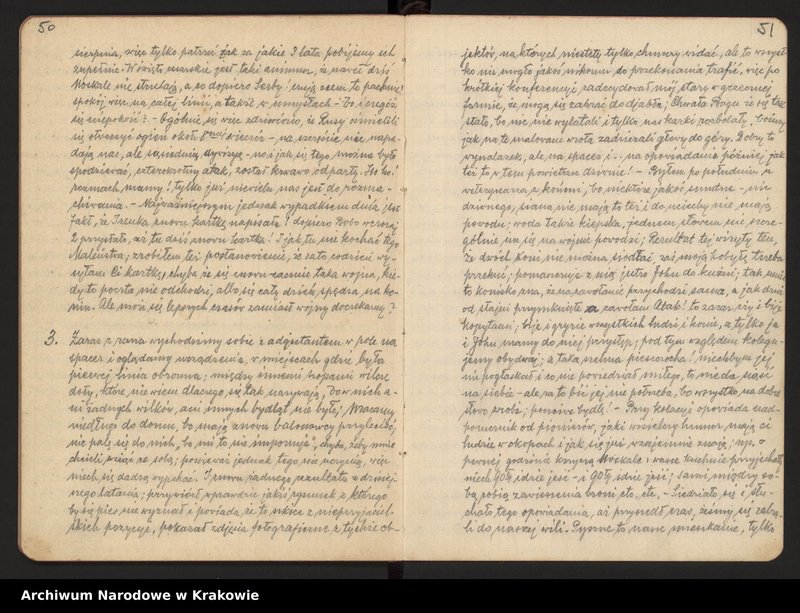 50
sierpnia, więc tylko patrzeć jak za jakie 3 lata pobijemy ich
zupełnie. W święto carskie jest taki animusz, że nawet dziś
Moskale nie strzelają, a co dopiero Serby!
spokój we na całej linii, a także w umysłach - bo i czegóż
się niepokoić? - Ogólnie się więc zdziwiono, że Rusy ośmielili
się otworzyć ogień około 8 wieczór - na szczęście nie napa-
dają nas, ale - no i jak się tego można było
spodziewać, czterokrotny atak, został krwawo odparty. Ho ho!
rozmach mamy! tylko już niewielu nas jest do rozma-
chiwania. - Najważniejszym jednak wypadkiem dnia jest
fakt, że Irenka znowu kartkę napisała! dopiero bo wczoraj
2 przyszło, aż tu dziś znowu kartka! I jak tu nie kochać tego
Maleństwa; zrobiłem też postanowienie, że całe codzień wy-
syłam Ci kartkę, chyba że się znowu zacznie taka wojna, kie-
dy to poczta nie odchodzi, albo się cały dzień spędza na ko-
niu. Ale może się lepszych czasów zamiast wojny doczekamy?
3. Zaraz z rana wychodzimy sobie z adjutantem w pole na
spacer i oglądamy urządzenia, w miejscach gdzie była
pierwej linia obronna; między innemi kopami wilcze
doły, które nie wiem dlaczego się tak nazywają, bo w nich a-
ni żadnych wilków, ani innych bydląt nie było; Wracamy
niedługo do domu, bo mają znowu balonowcy przylecieć,
nie palę się do nich, "bo mi to nie imponuje", chyba, żeby mnie
chcieli wziąć ze sobą; ponieważ jednak tego nie uczynią, więc
niech się dadzą wypchać. I znowu żadnego rezultatu z dzisiej-
szego latania; przywiózł wprawdzie jakiś rysunek z którego
by się pies nie wyznał i powiada, że to szkice z nieprzyjaciel-
skich pozycyj, pokazał zdjęcia fotograficzne z tychże ob-
51
jektów, na których niestety tylko chmury widać, ale to wszyst-
ko nie mogło jakoś nikomu do przekonania trafić, więc po
krótkiej konferencyi zadecydował mój stary w grzecznej
formie, że mogą się zabrać do djabła; Chwała Bogu że się tak
stało, bo nic nie wylatali i tylko nas karki rozbolały, bośmy
jak na te malowane wrota zadzierali głowy do góry. Dobry to
wynalazek, ale na spacer i.. na opowiadanie później jak
też to w tem powietrzu dziwnie! - Byłem po południu u
weterynarza z końmi, bo niektóre jakoś smutne - nic
dziwnego, siana nie mają to też i do uciechy nie mają
powodu; woda także kiepska, jednem słowem nie szcze-
gólnie im się na wojnie powodzi; Rezultat tej wizyty ten,
że dwóch koni nie można siodłać, zaś moją kobyłę trzeba
przekuć; pomaszeruje z nią jutro John do kuźni; tak mnie
to konisko zna, że na zawołanie przychodzi sama, a jak dziś
od stajni przymknięto a zawołam Atak! to zaraz rży i bije
kopytami; bije i gryzie wszystkich ludzi i konie, a tylko ja
i John mamy do niej przystęp; pod tym względem kolegu-
jemy obydwaj; a taka zechna pieszczocha! niechbym jej
nie pogłaskał i co nie powiedział miłego, to nie da siąść
na siebie - ale za to bić jej nie potrzeba, bo wszystko na dobre
słowo zrobi; poczciwe bydlę! - Przy kolacyi opowiada nad-
porucznik od pionierów, jaki wisielczy humor mają ci
ludzie w okopach i jak się już wzajemnie znoszą; np. o
pewnej godzinie krzyczą Moskale: wasze kuchnie przyjechały,
niech 40% idzie jeść - i 40% idzie jeść; sami między so-
bą robią zawieszenia broni etc. etc. - Siedziało się i słu-
chało tego opowiadania, aż przyszedł czas, żeśmy się zabra-
li do naszej wili. Pyszne to nasze mieszkanie, tylko
Archiwum Narodowe w Krakowie